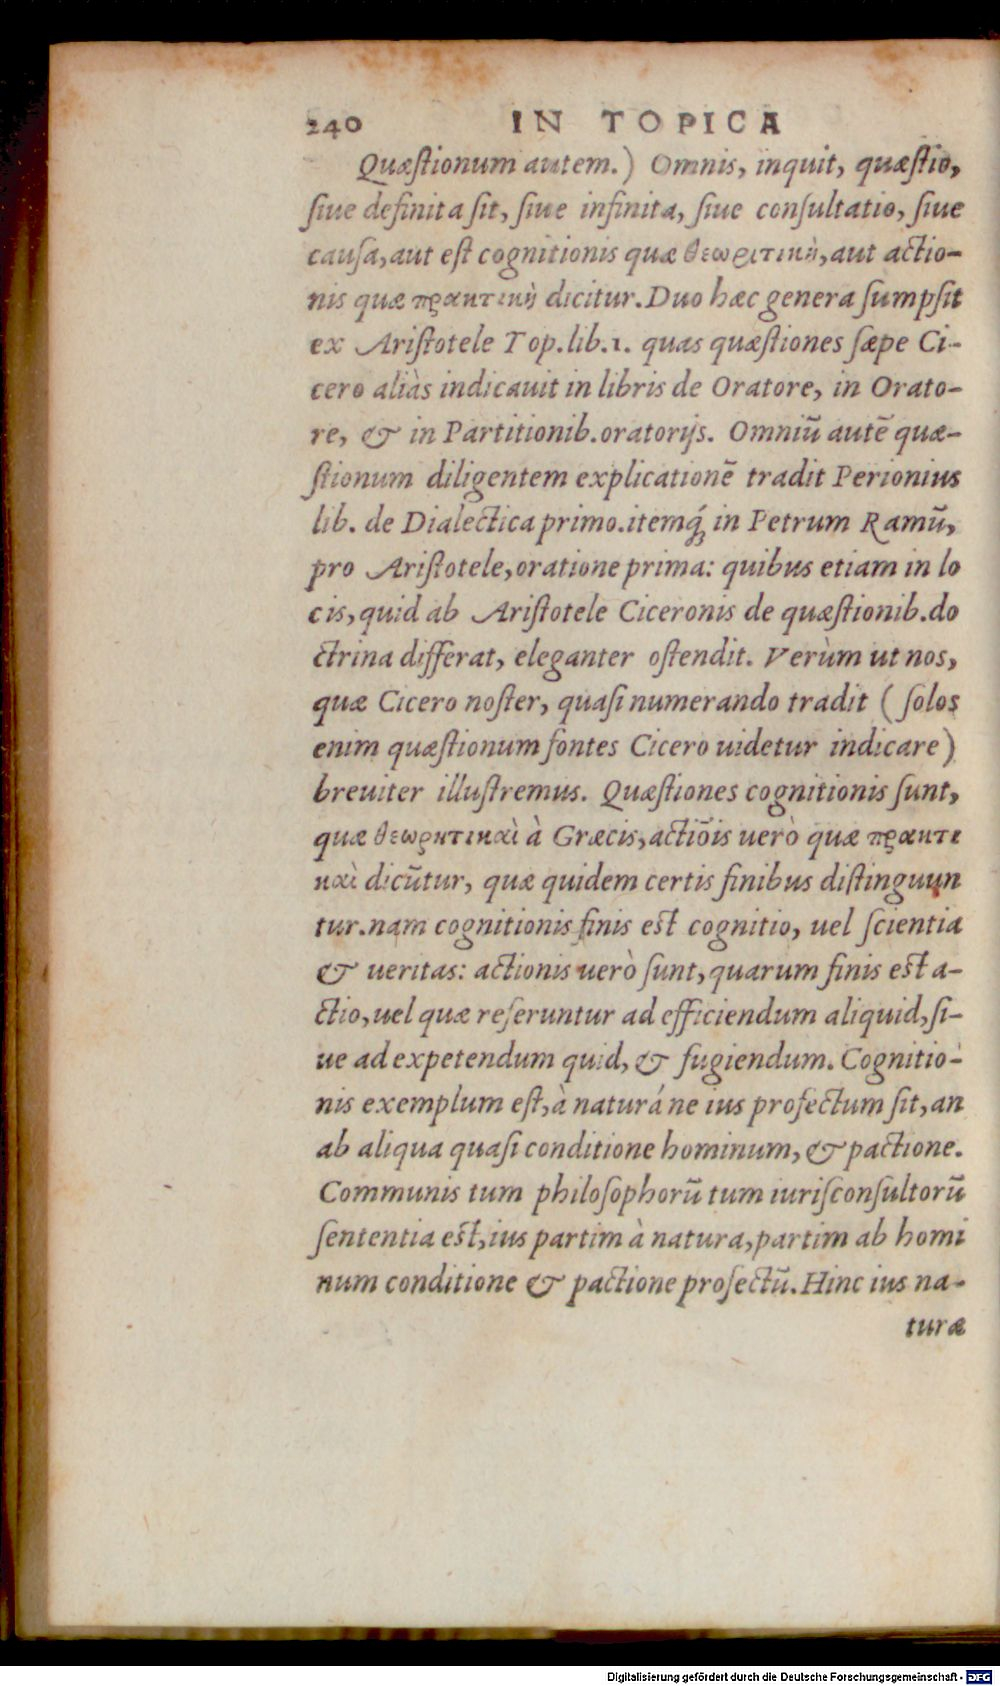 240 IN TOPICA
Quæstionum autem.) Omnis, inquit, quæstio,
siue definita sit, siue infinita, siue consultatio, siue
causa, aut est cognitionis quæ θεωριτικὴ, aut actio-
nis quæ πρακτικὴ dicitur. Duo hæc genera sumpsit
ex Aristotele Top. lib. 1. quas quæstiones sæpe Ci-
cero aliàs indicauit in libris de Oratore, in Orato-
re, & in Partitionib. oratorijs. Omniũ autẽ quæ-
stionum diligentem explicationẽ tradit Perionius
lib. de Dialectica primo. itemq́; in Petrum Ramũ,
pro Aristotele, oratione prima: quibus etiam in lo
cis, quid ab Aristotele Ciceronis de quæstionib. do
ctrina differat, eleganter ostendit. Verùm ut nos,
quæ Cicero noster, quasi numerando tradit (solos
enim quæstionum fontes Cicero uidetur indicare)
breuiter illustremus. Quæstiones cognitionis sunt,
quæ θεωρητικαὶ à Græcis, actiõis uerò quæ πρακτι
καὶ dicũtur, quæ quidem certis finibus distinguun
tur. nam cognitionis finis est cognitio, uel scientia
& ueritas: actionis uerò sunt, quarum finis est a-
ctio, uel quæ referuntur ad efficiendum aliquid, si-
ue ad expetendum quid, & fugiendum. Cognitio-
nis exemplum est, à naturá ne ius profectum sit, an
ab aliqua quasi conditione hominum, & pactione.
Communis tum philosophorũ tum iurisconsultorũ
sententia est, ius partim à natura, partim ab homi
num conditione & pactione profectũ. Hinc ius na-
turæ
Digitalisierung gefördert durch die Deutsche Forschungsgemeinschaft - DFG